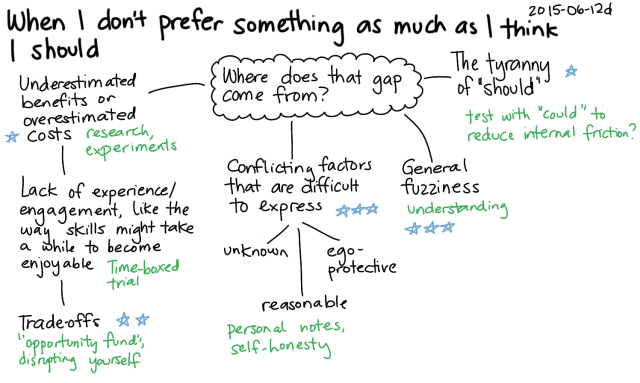 When I don't prefer something as much as I think
I should
2015-06-12d
Where does that gap
come from?
Underestimated
benefits or
overestimated
costs
research,
experiments
Lack of experience/
engagement, like the
way skills might take
a while to become
enjoyable
Time-boxed
trial
Trade-offs
"opportunity fund",
disrupting yourself
Conflicting factors
that are difficult
to express
unknown
reasonable
personal notes,
self-honesty
ego-
protective
General
fuzziness
understanding
The tyranny
of "should"
test with "could" to
reduce internal friction?